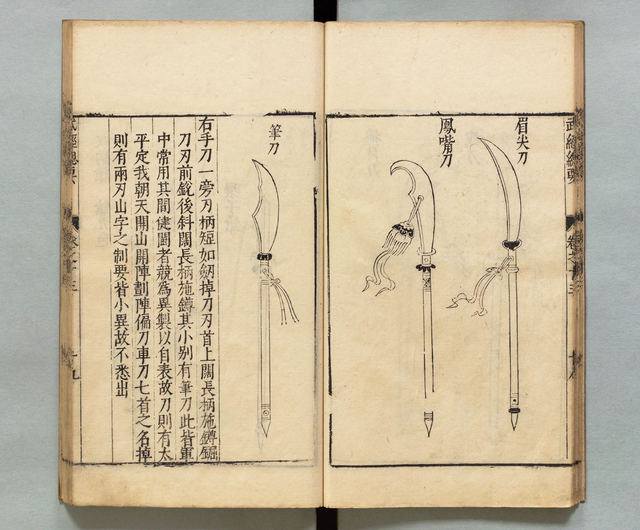 武經總要
卷之十三
眉尖刀
鳳嘴刀
筆刀
右手刀一旁刃柄短如劒掉刀刃首上闊長柄施鐏
刀刃前銳後斜闊長柄施鐏其小别有筆刀此皆軍
中常用其間健鬭者競為異製以自表故刀則有太
平定我朝天開山開陣劃陣偏刀車刀七首之名掉
則有兩刃山字之制要皆小異故不悉出
武經總要
卷之十三
十九